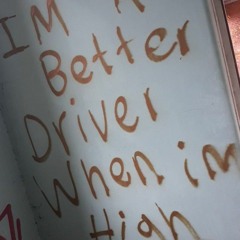 IM A
Better
Driver
When im
High